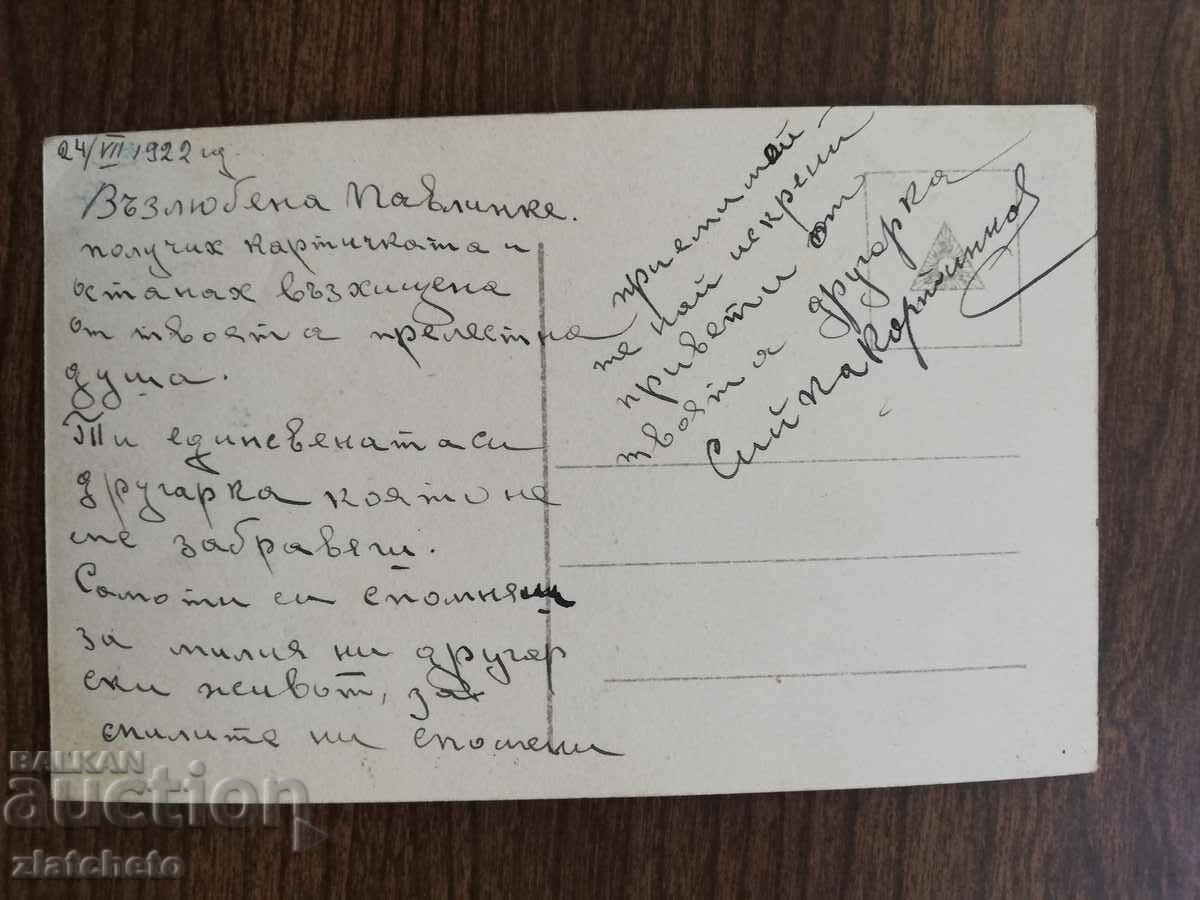 24/VII 1922 год.
Възлюбена Павлинке.
получих картичката и
останах възхищена
от твоята прелестна
душа.
Ти единсвената си
другарка която не
ме забравяш.
Само ти си спомняш
за милия ни другар
ски живот, за
милите ни спомени
приеми мой
те най искрени
привети от
твоята другарка
BALKAN
auction
zlatcheto